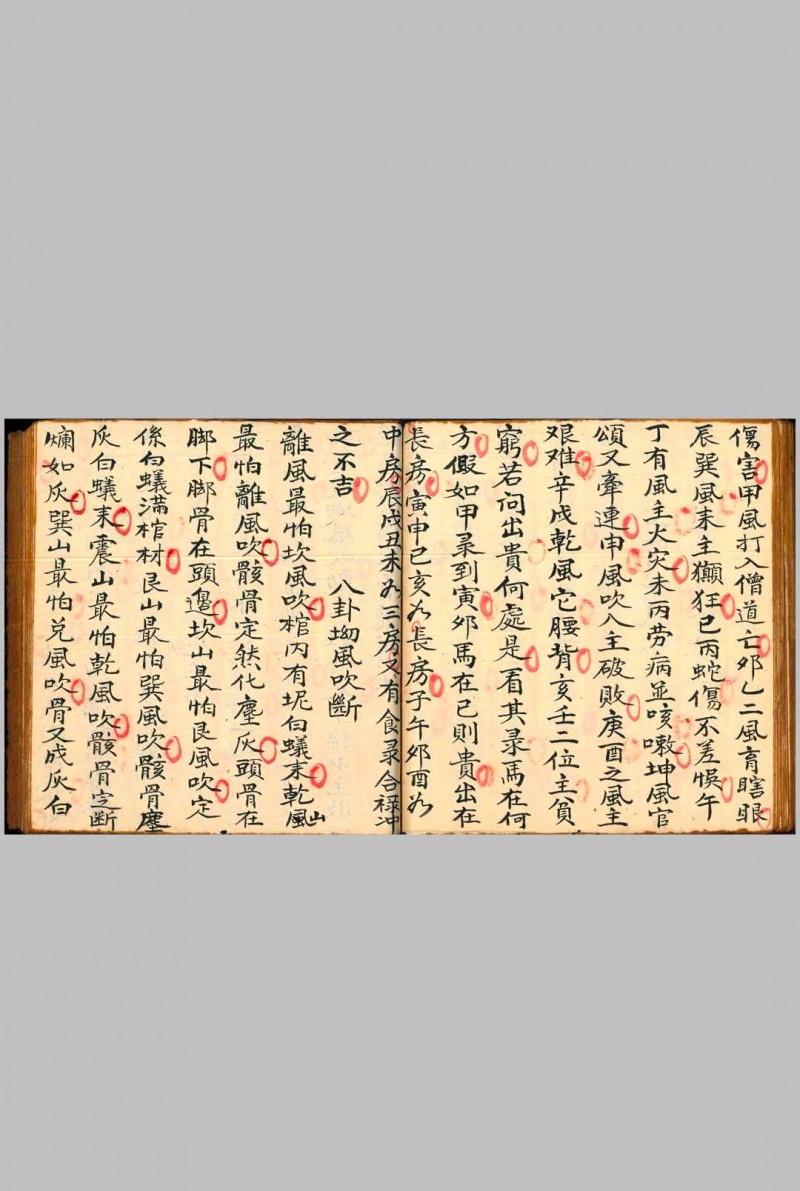 傷害甲風打入僧道亡夘乙二風盲瞎眼
辰巽風耒主癲狂巳丙蛇傷不差悞午
丁有風主火灾未丙劳病並咳嗽坤風官
頌又牽連申風吹入主破敗庚酉之風主
艰难辛戌乾風它腰背亥壬二位主貧
窮若问出貴何處是看其录馬在何
方假如甲录到寅夘馬在巳則貴出在
長房寅申巳亥為長房子午夘酉為
中房辰戌丑未為三房又有食录合禄冲
之不吉　八卦坳風吹斷
離風最怕坎風吹棺内有坭白蟻耒乾山風
最怕離風吹骸骨定然化塵灰頭骨在
脚下脚骨在頭邉坎山最怕艮風吹定
係白蟻满棺材艮山最怕巽風吹骸骨塵
灰白蟻耒震山最怕乾風吹骸骨定断
爛如灰巽山最怕兑風吹骨又成灰白